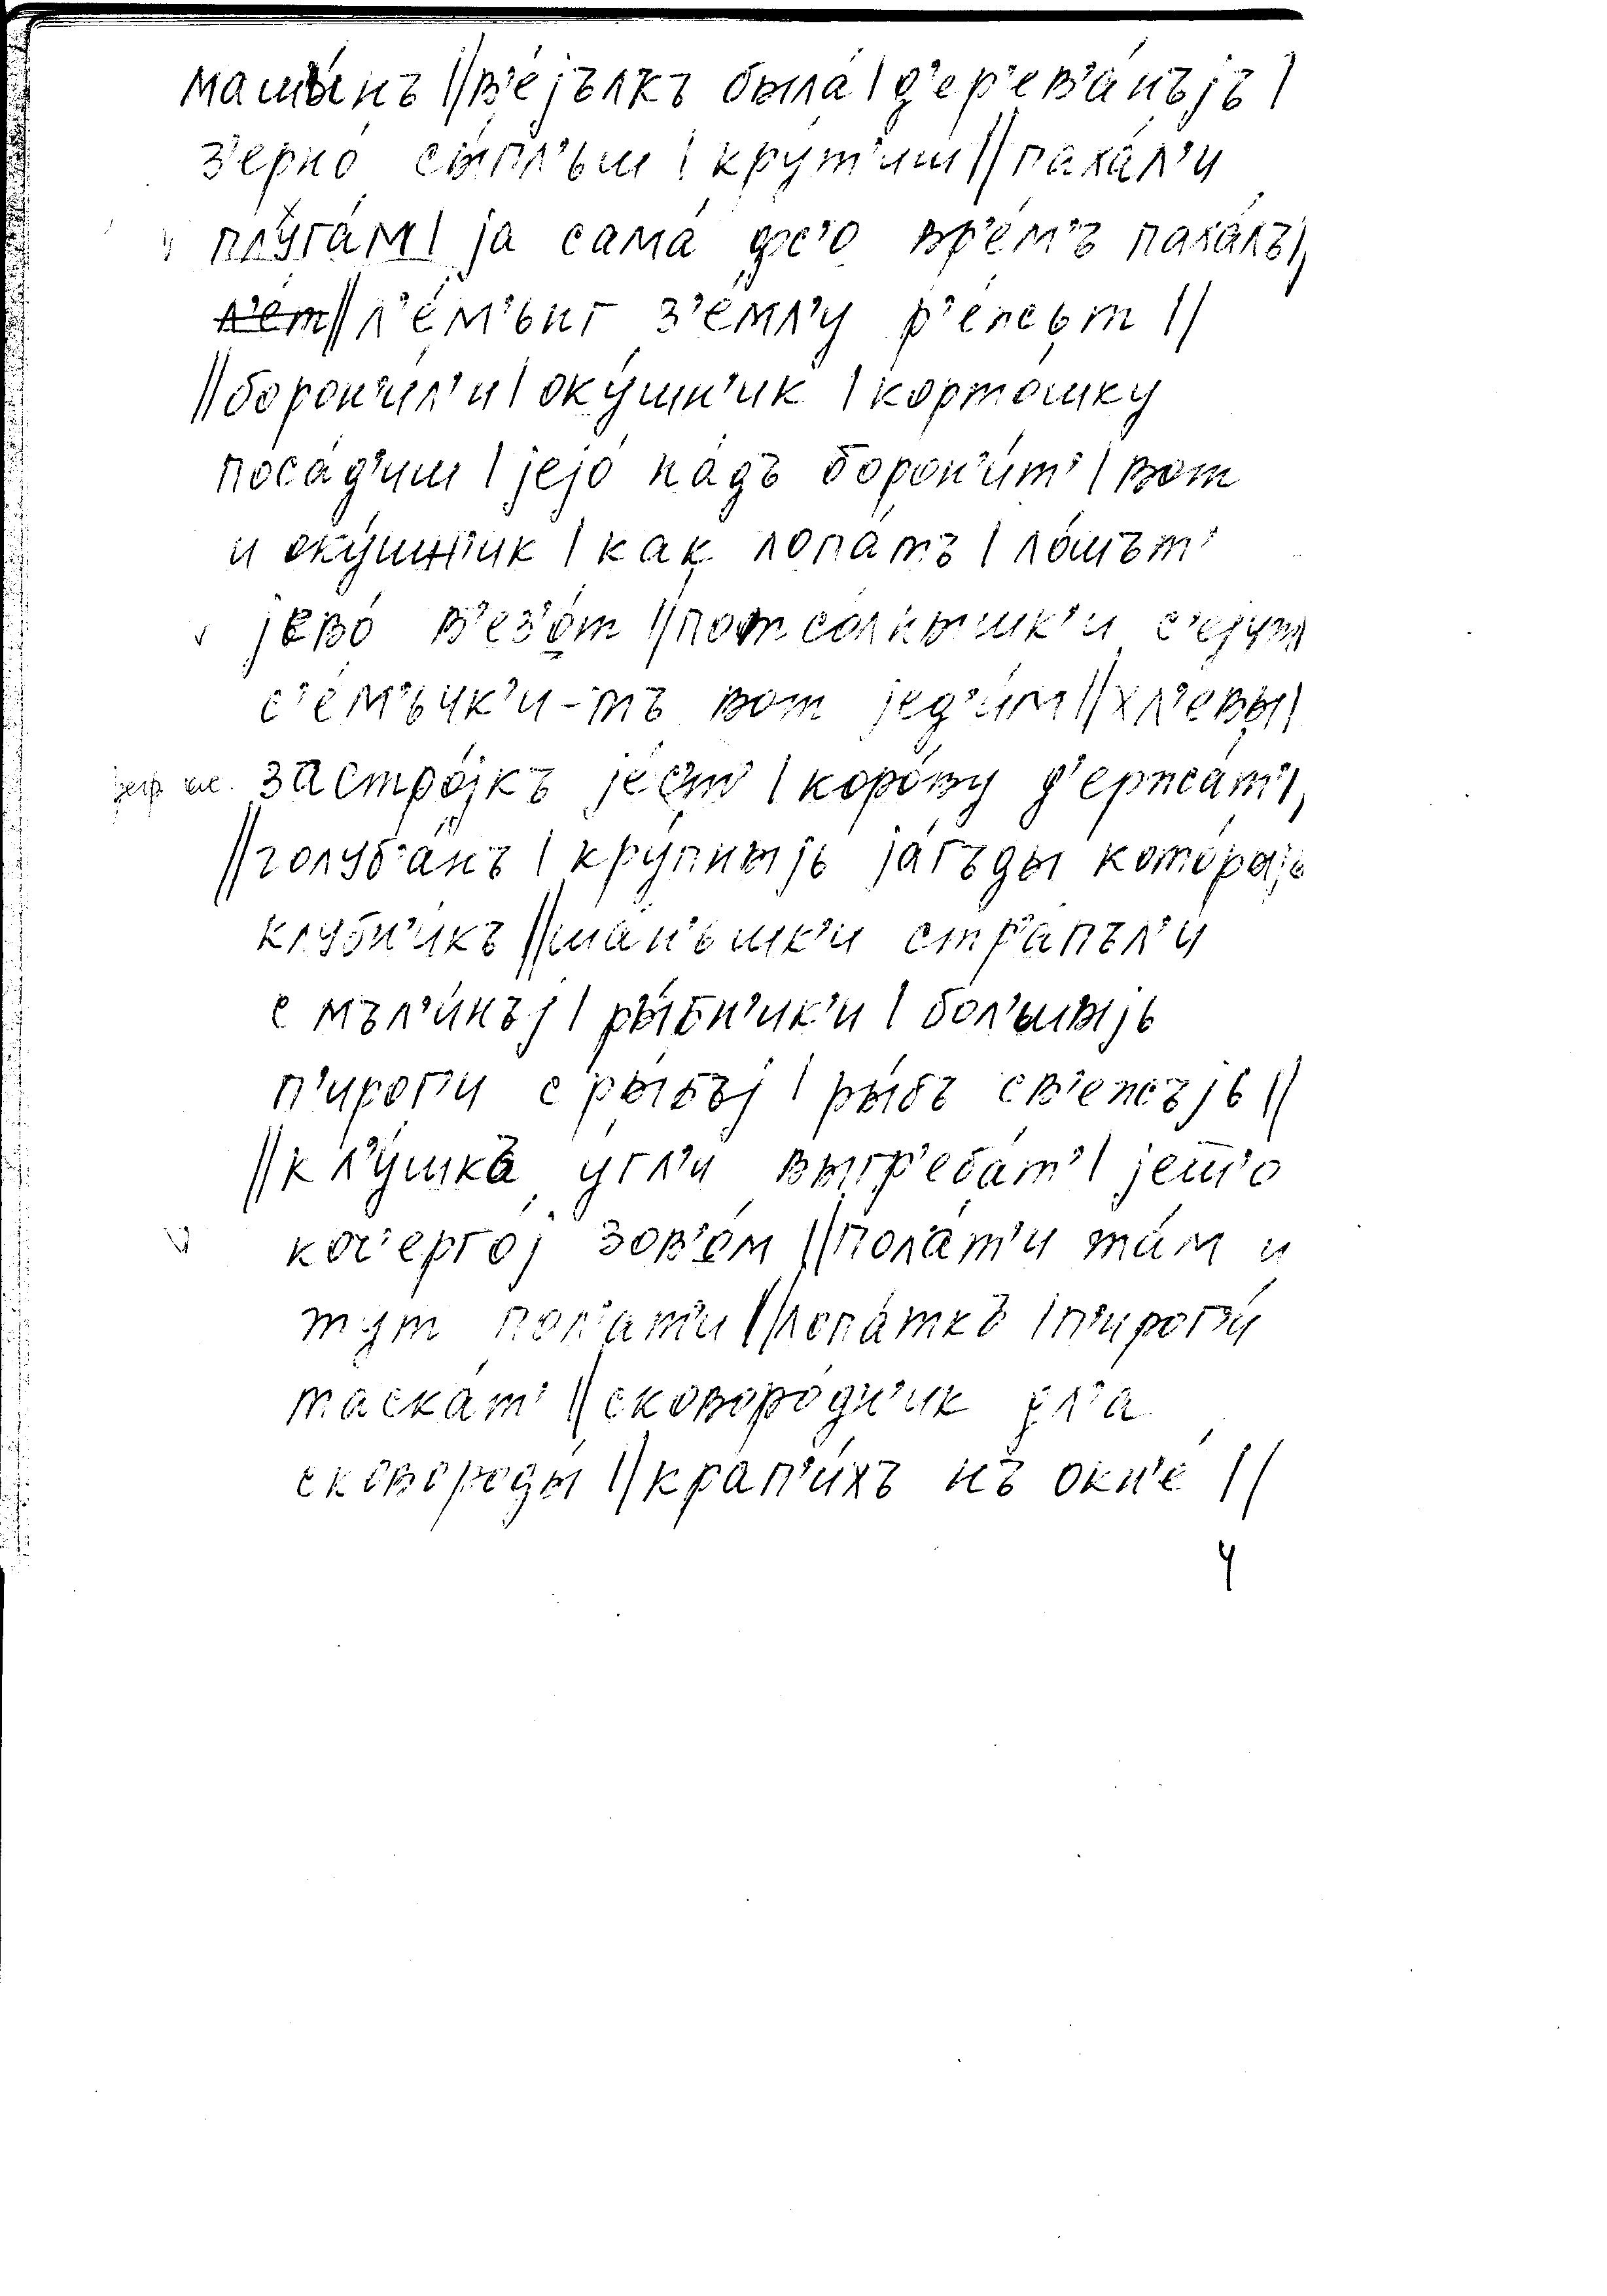 машы́нъ || в'е́јълкъ была́ | д'ер'ев'а́нъјъ |
з'ерно́ сы́пл'ьш | кру́т'иш || паха́л'и
плуга́м | ја сама́ фс'о вр'е́м'ъ паха́лъ |
л'ет || л'е́м'ьиг з'е́мл'у р'е́жът ||
|| борон'и́л'и | оку́шн'ик | корто́шку
поса́д'иш | јејо́ на́дъ борон'и́т' | вот
и оку́шн'ик | как лопа́тъ | ло́шът'
јево́ в'ез'о́т || потсо́лнышк'и с'е́јут |
с'е́м'ьчк'и-тъ вот јед'и́м || хл'евы́ |
застро́јкъ је́ст' | коро́ву д'ержа́т' |
|| голуб'а́нъ | кру́пныјь ја́гъды кото́рыјь
клубн'и́къ || ша́н'ьшк'и стр'а́пъл'и
с мъл'и́нъј | ры́бн'ик'и | бол'шы́јь
п'ирог'и́ с ры́бъј | ры́бъ св'е́жъјь ||
|| кл'у́шкъ у́гл'и выгр'еба́т' | јеш'о
коч'ерго́ј зов'о́м || пола́т'и та́м и
тут пол'ат'и || лопа́ткъ | п'ирог'и́
таска́т' || сковоро́дн'ик дл'а
сковороды́ || крап'и́хъ нъ окн'е́ ||
4